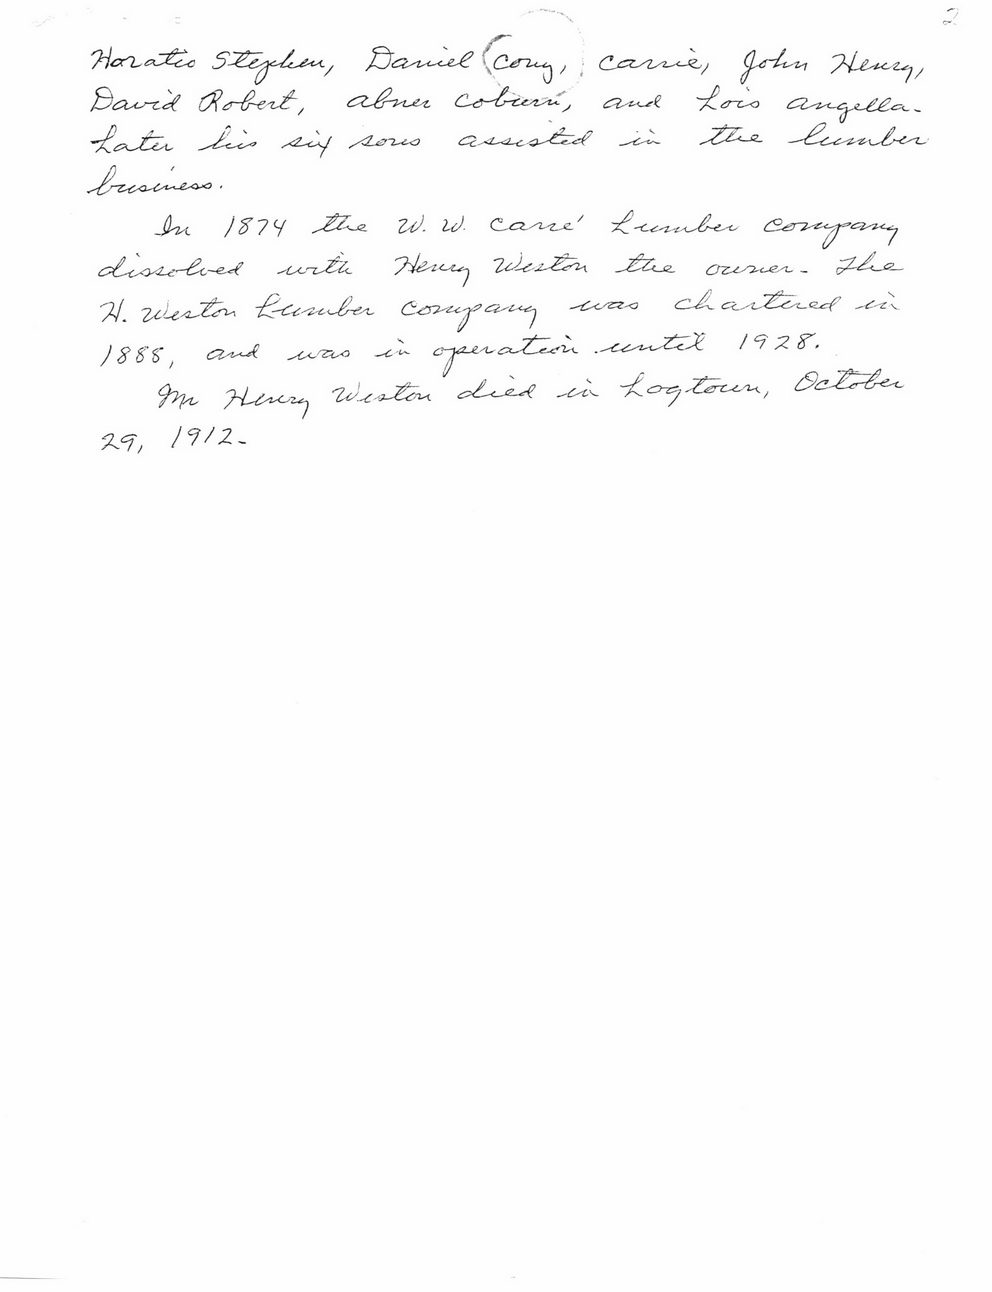 2
Horatio Stephen, Daniel (Cony, Carrie, John Henry,
David Robert, Abner Coburn, and Lois Angella.
Later his six sons assisted in the lumber
business.
In 1874 the W. W. Carré Lumber Company
dissolved with Henry Weston the owner. The
H. Weston Lumber Company was chartered in
1888, and was in operation until 1928.
Mr Henry Weston died in Logtown, October
29, 1912.